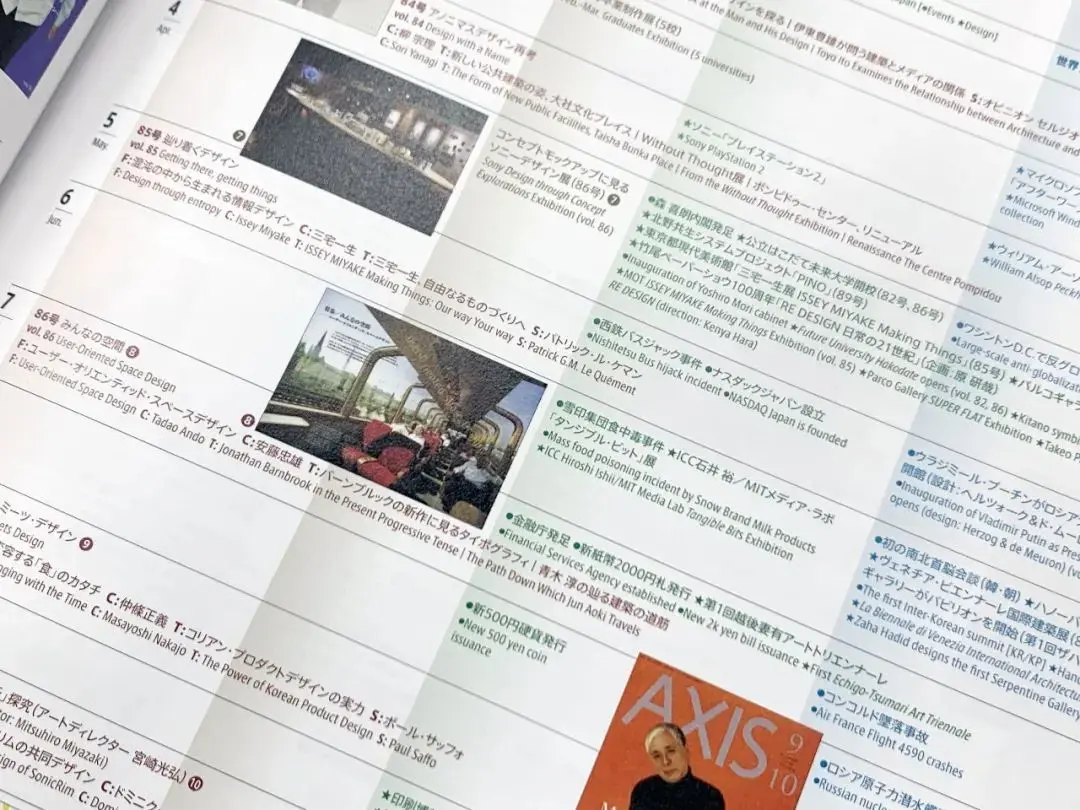 4
Apr.
84号 アノニマスデザイン再考
vol. 84 Design with a Name
C:柳 宗理 T:新しい公共建築の姿、大社文化プレイス | Without Thought展 | ポンピドゥー・センター、リニューアル
C: Sori Yanagi T: The Form of New Public Facilities, Taisha Bunka Place | From the Without Thought Exhibition | Renaissance The Centre Pompidou
5
May.
85号 辿り着くデザイン
vol. 85 Getting there, getting things
F:混沌の中から生まれる情報デザイン C:三宅一生 T:三宅一生、自由なるものづくりへ S:パトリック・ル・ケマン
F: Design through entropy C: Issey Miyake T: ISSEY MIYAKE Making Things: Our way Your way S: Patrick G.M. Le Quément
6
Jun.
7
86号 みんなの空間 8
vol. 86 User-Oriented Space Design
F:ユーザー・オリエンティッド・スペースデザイン C:安藤忠雄 T:バーンブルックの新作に見るタイポグラフィ | 青木 淳の辿る建築の道筋
F: User-Oriented Space Design C: Tadao Ando T: Jonathan Barnbrook in the Present Progressive Tense | The Path Down Which Jun Aoki Travels
7
8
ミーツ・デザイン 9
ets Design
容する「食」のカタチ C:仲條正義 T:コリアン・プロダクトデザインの実力 S:ポール・サッフォ
nging with the Time C: Masayoshi Nakajo T: The Power of Korean Product Design S: Paul Saffo
探究(アートディレクター 宮崎光弘) 10
tor: Mitsuhiro Miyazaki)
リムの共同デザイン C:ドミニク
ign of SonicRim C: Dom
卒業制作展(5校)
-Mar. Graduates Exhibition (5 universities)
コンセプトモックアップに見る
ソニーデザイン展(86号) 7
Sony Design through Concept
Explorations Exhibition (vol. 86)
ンを探る | 伊東豊雄が問う建築とメディアの関係 S:オピニオン セルジオ
at the Man and His Design | Toyo Ito Examines the Relationship between Architecture and
★ソニー「プレイステーション2」
★Sony PlayStation 2
●森 喜朗内閣発足 ★公立はこだて未来大学開校(82号、86号)
★北野共生システムプロジェクト「PINO」(89号)
★東京都現代美術館「三宅一生展 ISSEY MIYAKE Making Things」(85号) ★パルコギャラ
★竹尾ペーパーショウ100周年「RE DESIGN 日常の21世紀」(企画:原 研哉)
●Inauguration of Yoshiro Mori Cabinet ★Future University Hakodate opens (vol. 82, 86) ★Kitano symbi
★MOT ISSEY MIYAKE Making Things Exhibition (vol. 85) ★Parco Gallery SUPER FLAT Exhibition ★Takeo P
RE DESIGN (direction: Kenya Hara)
●西鉄バスジャック事件 ●ナスダックジャパン設立
●Nishitetsu Bus hijack incident ●NASDAQ Japan is founded
●雪印集団食中毒事件 ★ICC石井 裕/MITメディア・ラボ
「タンジブル・ビット」展
●Mass food poisoning incident by Snow Brand Milk Products
★ICC Hiroshi Ishii/MIT Media Lab Tangible Bits Exhibition
●金融庁発足 ●新紙幣2000円札発行 ★第1回越後妻有アートトリエンナーレ
●Financial Services Agency established ●New 2k yen bill issuance ★First Echigo-Tsumari Art Triennale
●新500円硬貨発行
●New 500 yen coin
issuance
★印刷博
AXIS
9
10
pan [●Events ★Design]
世界
★マイクロソフ
「アフターワー
★Microsoft Wind
collection
★ウィリアム・アーソ
★William Alsop Peckh
●ワシントンD.C.で反グロ
●Large-scale anti-globalizat
●ウラジミール・プーチンがロシア
開館(設計:ヘルツォーク&ド・ムーロ
●Inauguration of Vladimir Putin as Pres
opens (design: Herzog & de Meuron) (v
●初の南北首脳会談(韓・朝) ★ハノーバ
★ヴェネチア・ビエンナーレ国際建築展(8
ギャラリーがパビリオンを開始(第1回ザハ
●The first Inter-Korean summit [KR/KP] ★Hano
★La Biennale di Venezia International Architectu
★Zaha Hadid designs the first Serpentine Gallery
●コンコルド墜落事故
●Air France Flight 4590 crashes
●ロシア原子力潜水艦
●Russian nucl